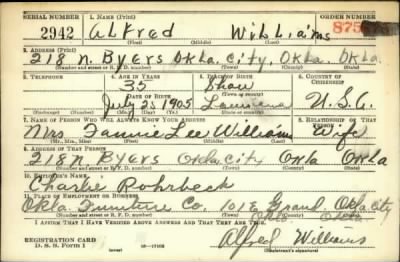 SERIAL NUMBER 1. NAME (Print) ORDER NUMBER
2942 Alfred Williams 875
(First) (Middle) (Last)
2. ADDRESS (Print)
218 N. Byers Okla. City, Okla. Okla.
(Number and street or R. F. D. number) (Town) (County) (State)
3. TELEPHONE 4. AGE IN YEARS 5. PLACE OF BIRTH 6. COUNTRY OF CITIZENSHIP
35
DATE OF BIRTH
July 25 1905 Louisiana U.S.A.
(Exchange) (Number) (Mo.) (Day) (Yr.) (State or country)
7. NAME OF PERSON WHO WILL ALWAYS KNOW YOUR ADDRESS 8. RELATIONSHIP OF THAT PERSON
Mrs. Fannie Lee Williams Wife
(Mr., Mrs., Miss) (First) (Middle) (Last)
9. ADDRESS OF THAT PERSON
218 N. Byers Okla. city Okla Okla
(Number and street or R. F. D. number) (Town) (County) (State)
10. EMPLOYER'S NAME
Charlie Rohrbeck
11. PLACE OF EMPLOYMENT OR BUSINESS
Okla. Furniture Co. 101 E Grand Okla City
(Number and street or R. F. D. number) (Town) (County) (State)
I AFFIRM THAT I HAVE VERIFIED ABOVE ANSWERS AND THAT THEY ARE TRUE.
REGISTRATION CARD
D. S. S. Form 1 (over) 16—17105 Alfred Williams